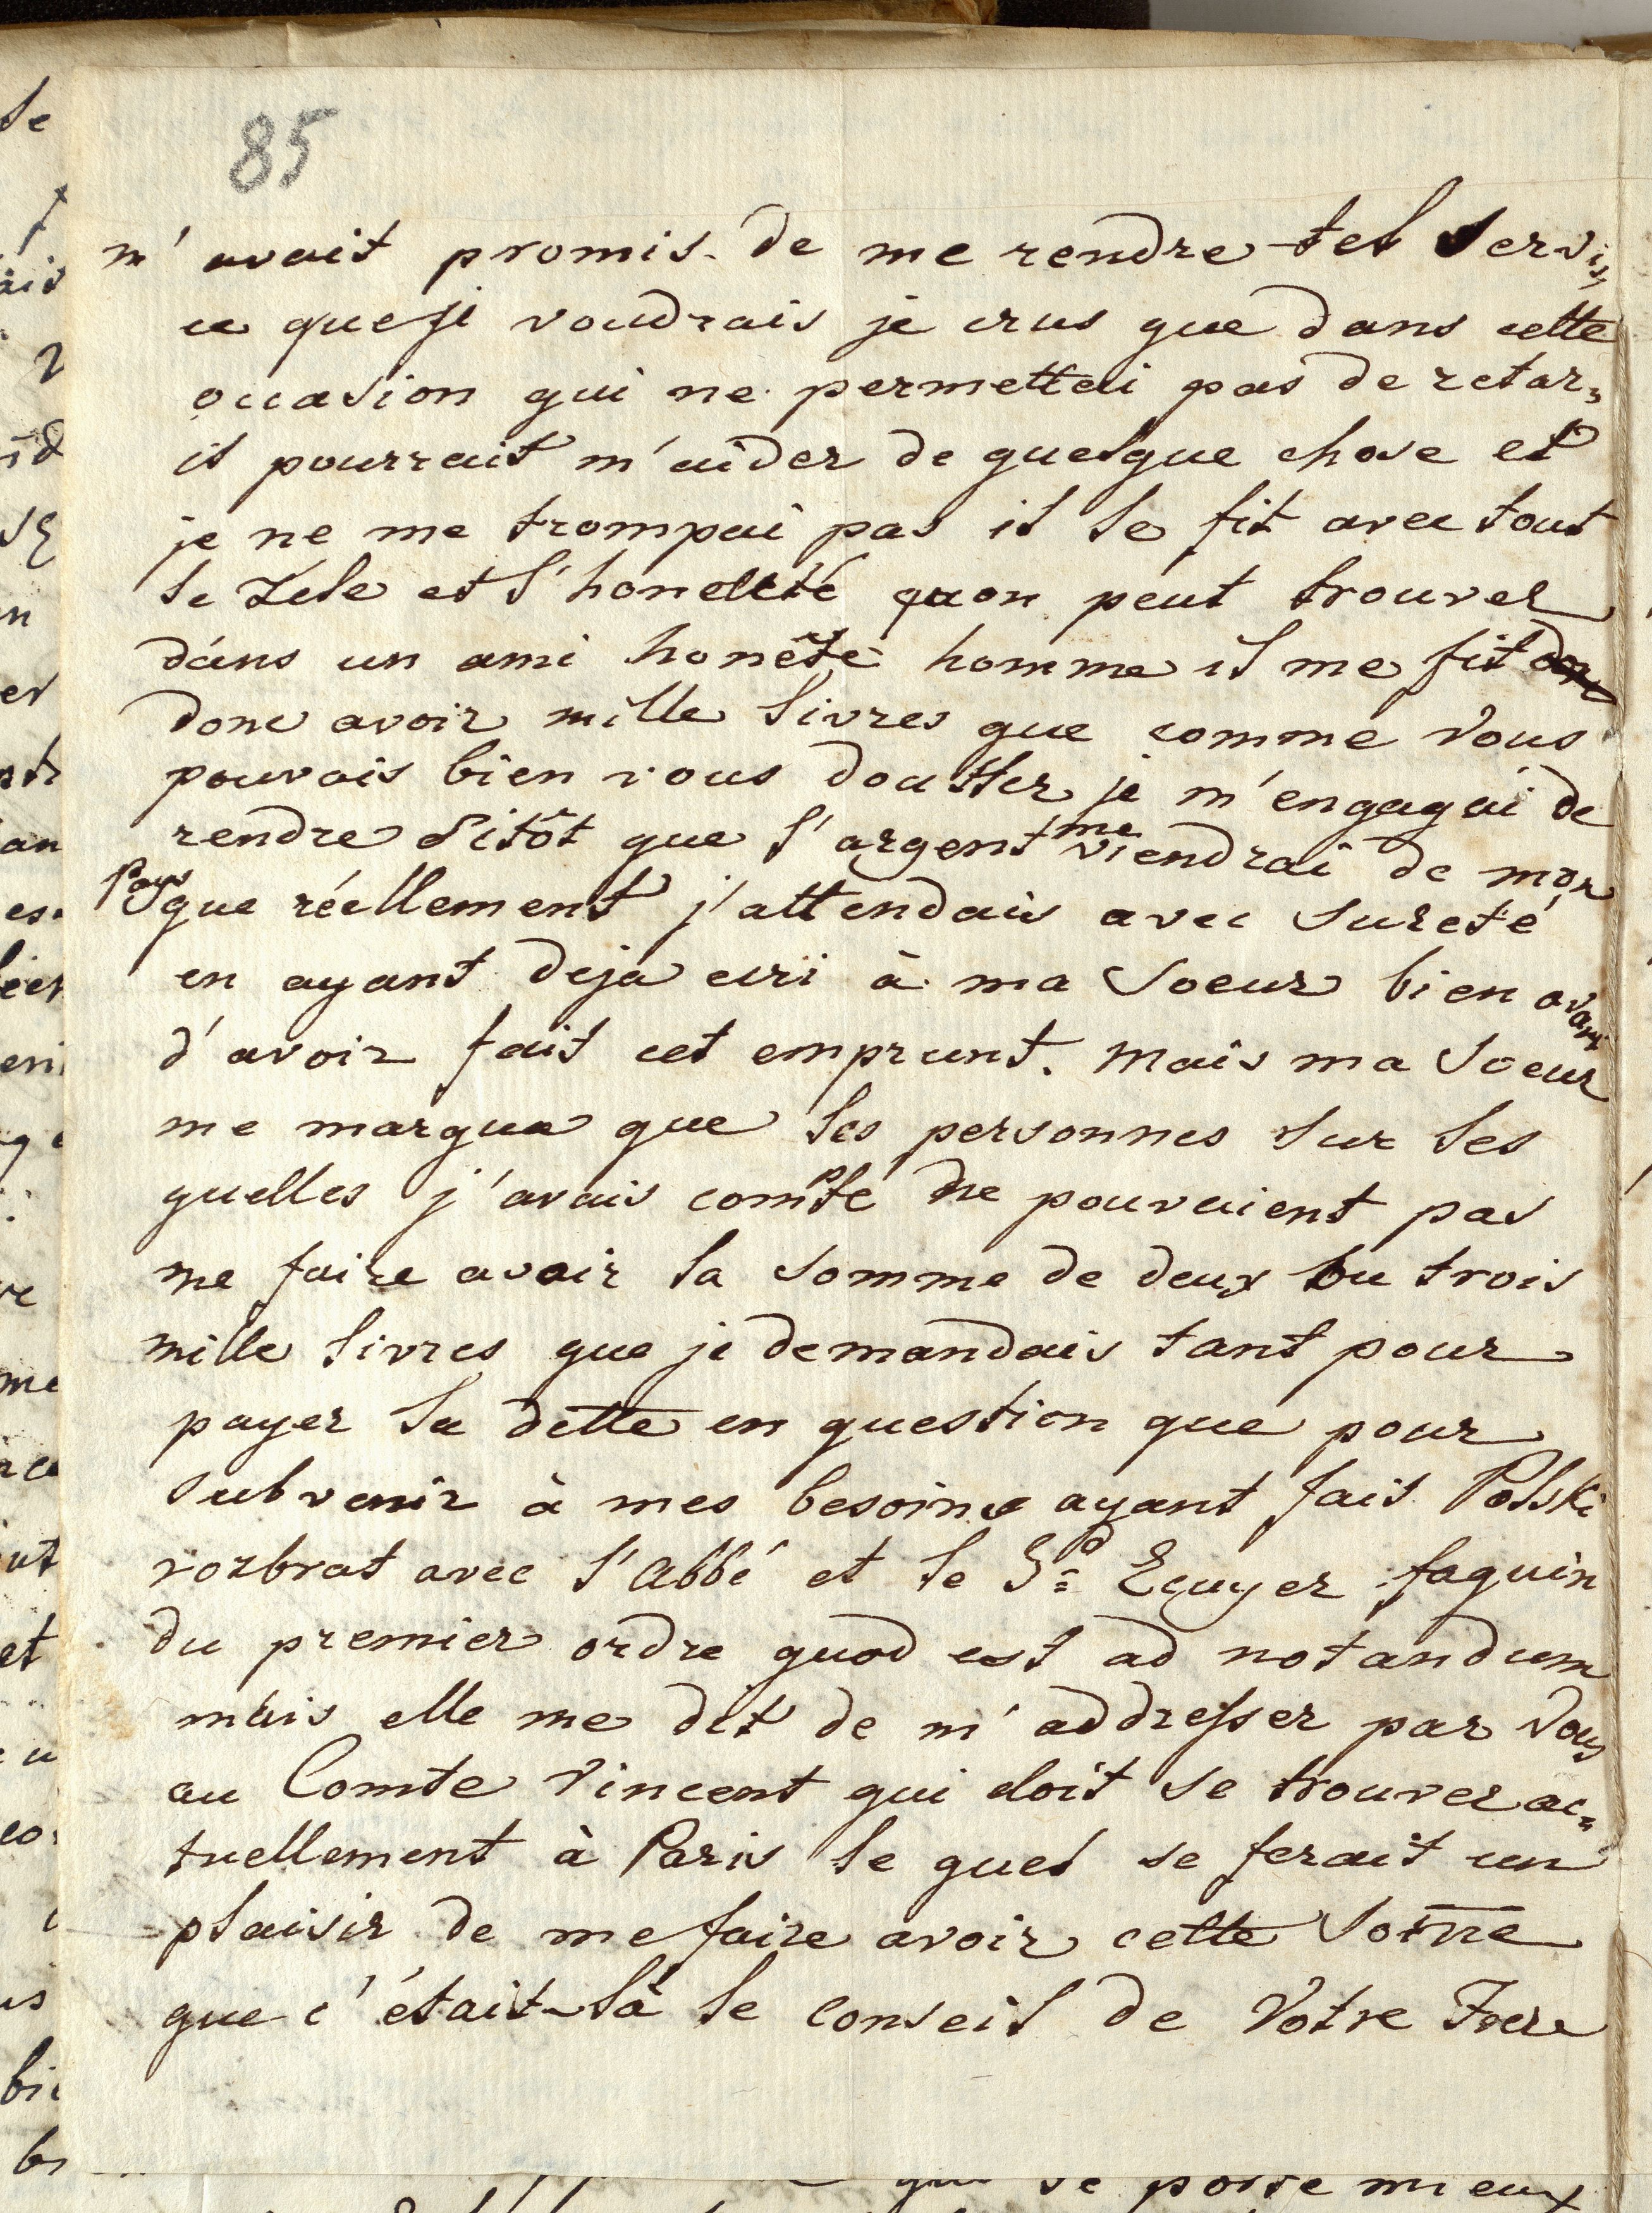 85
m'avait promis de me rendre tel servi=
ce que je voudrais je crus que dans cette
occasion qui ne permettai pas de retar=
il pourrait m'aider de quelque chose et
je ne me trompai pas il le fit avec tout
le Zele et l'honetteté quon peut trouver
dans un ami honête homme il me fit
donc avoir mille livres que comme Vous
pouvais bien vous doutter je m'engagai de
rendre sitôt que l'argent me viendrai de mon
Pays que réellement j'attendais avec sureté
en ayant deja ecri à ma Soeur bien avant
d'avoir fait cet emprunt. Mais ma Soeur
me marqua que les personnes sur les
quelles j'avais compté ne pouvaient pas
me faire avoir la somme de deux ou trois
mille livres que je demandais tant pour
payer la dette en question que pour
subvenir à mes besoins ayant fais Polski
rozbrat avec l'Abbé et le Sd Ecuyer faquin
du premier ordre quod est ad notandum
mais elle me dit de m'addresser par Vous
au Comte Vincent qui doit se trouver ac=
tuellement à Paris le quel se ferait un
plaisir de me faire avoir cette Som̅e
que c'était-là le Conseil de Votre Frere